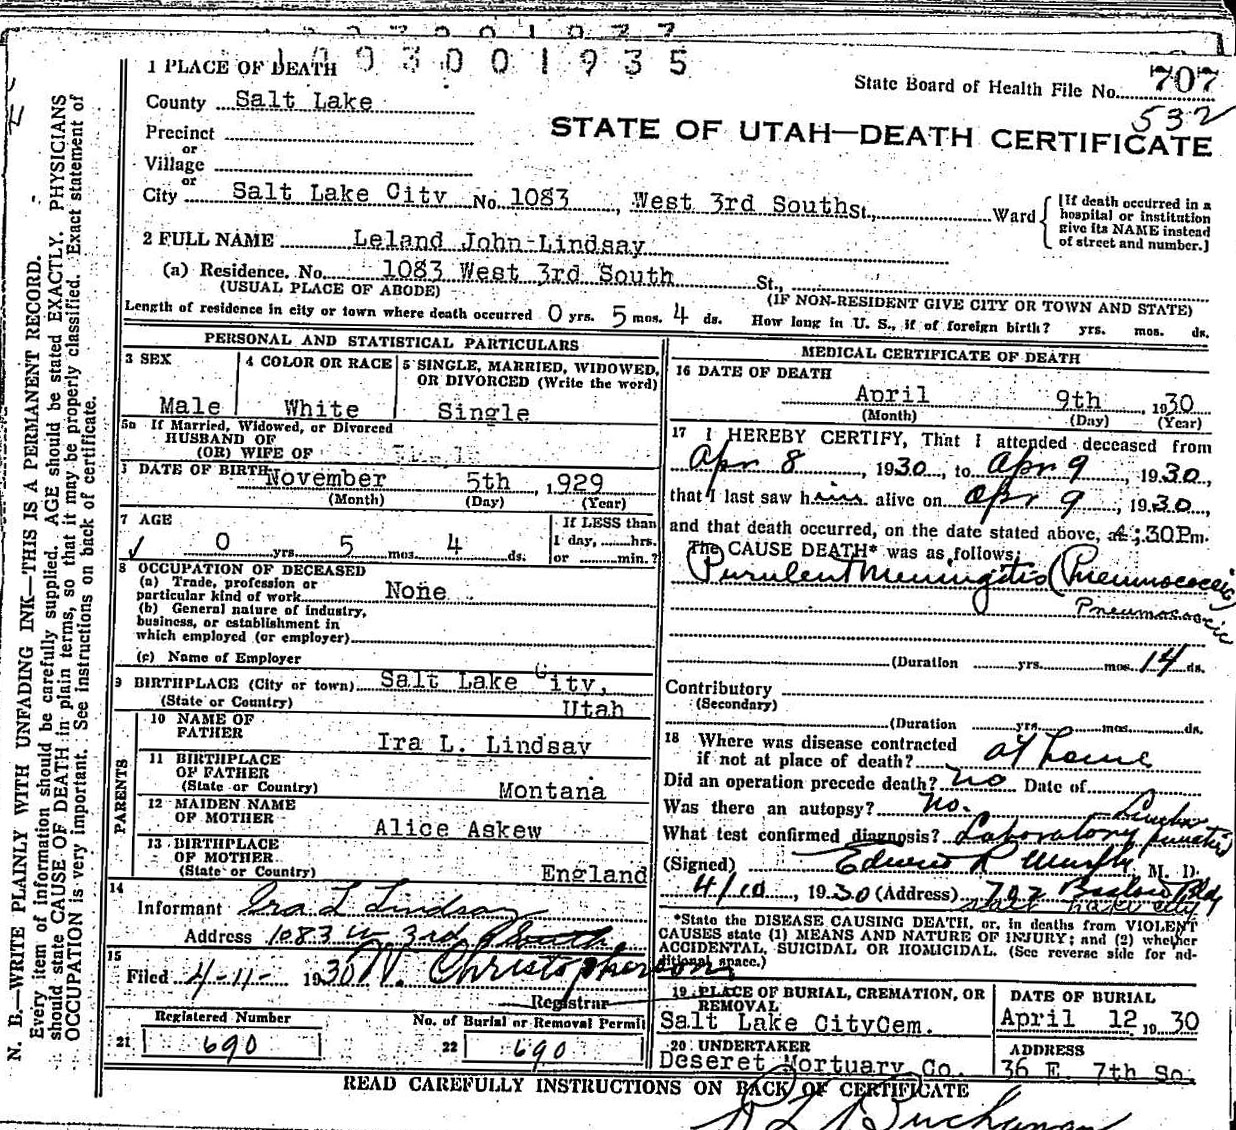 1093001935
1 PLACE OF DEATH
State Board of Health File No. 707
County Salt Lake
532
STATE OF UTAH—DEATH CERTIFICATE
Precinct
or
Village
or
City Salt Lake City No. 1083, West 3rd South St., Ward
[If death occurred in a
hospital or institution
give its NAME instead
of street and number.]
2 FULL NAME Leland John Lindsay
(a) Residence. No. 1083 West 3rd South St.,
(USUAL PLACE OF ABODE) (IF NON-RESIDENT GIVE CITY OR TOWN AND STATE)
Length of residence in city or town where death occurred 0 yrs. 5 mos. 4 ds. How long in U. S., if of foreign birth? yrs. mos. ds.
PERSONAL AND STATISTICAL PARTICULARS
3 SEX
Male
4 COLOR OR RACE
White
5 SINGLE, MARRIED, WIDOWED,
OR DIVORCED (Write the word)
Single
5a If Married, Widowed, or Divorced
HUSBAND OF
(OR) WIFE OF
DATE OF BIRTH November 5th, 1929
(Month) (Day) (Year)
7 AGE
0 yrs. 5 mos. 4 ds.
If LESS than
1 day, hrs.
or min.?
8 OCCUPATION OF DECEASED
(a) Trade, profession or
particular kind of work None
(b) General nature of industry,
business, or establishment in
which employed (or employer)
(c) Name of Employer
9 BIRTHPLACE (City or town) Salt Lake City,
(State or Country) Utah
PARENTS
10 NAME OF
FATHER Ira L. Lindsay
11 BIRTHPLACE
OF FATHER
(State or Country) Montana
12 MAIDEN NAME
OF MOTHER Alice Askew
13 BIRTHPLACE
OF MOTHER
(State or Country) England
14
Informant Ira L Lindsay
Address 1083 W 3rd South
15
Filed 4-11- 1930 W. Christopherson
Registrar
Registered Number
21 690
No. of Burial or Removal Permit
22 690
MEDICAL CERTIFICATE OF DEATH
16 DATE OF DEATH
April 9th, 1930
(Month) (Day) (Year)
17 I HEREBY CERTIFY, That I attended deceased from
Apr 8, 1930, to Apr 9, 1930,
that I last saw him alive on Apr 9, 1930,
and that death occurred, on the date stated above, at :30 Pm.
The CAUSE DEATH* was as follows:
Purulent Meningitis (Pneumococcic)
Pneumococcic
(Duration yrs. mos. 14 ds.
Contributory
(Secondary)
(Duration yrs. mos. ds.
18 Where was disease contracted
if not at place of death? at home
Did an operation precede death? No Date of
Was there an autopsy? No.
What test confirmed diagnosis? Laboratory
(Signed) Edwin R Murphy, M. D.
4/10, 1930 (Address) 702 Bldg
Salt Lake City
*State the DISEASE CAUSING DEATH, or, in deaths from VIOLENT
CAUSES state (1) MEANS AND NATURE OF INJURY; and (2) whether
ACCIDENTAL, SUICIDAL OR HOMICIDAL. (See reverse side for ad-
ditional space.)
19 PLACE OF BURIAL, CREMATION, OR
REMOVAL
Salt Lake City Cem.
DATE OF BURIAL
April 12, 1930
20 UNDERTAKER
Deseret Mortuary Co.
ADDRESS
36 E. 7th So.
READ CAREFULLY INSTRUCTIONS ON BACK OF CERTIFICATE
Buchanan
N. B.—WRITE PLAINLY WITH UNFADING INK—THIS IS A PERMANENT RECORD.
Every item of information should be carefully supplied. AGE should be stated EXACTLY. PHYSICIANS
should state CAUSE OF DEATH in plain terms, so that it may be properly classified. Exact statement of
OCCUPATION is very important. See instructions on back of certificate.